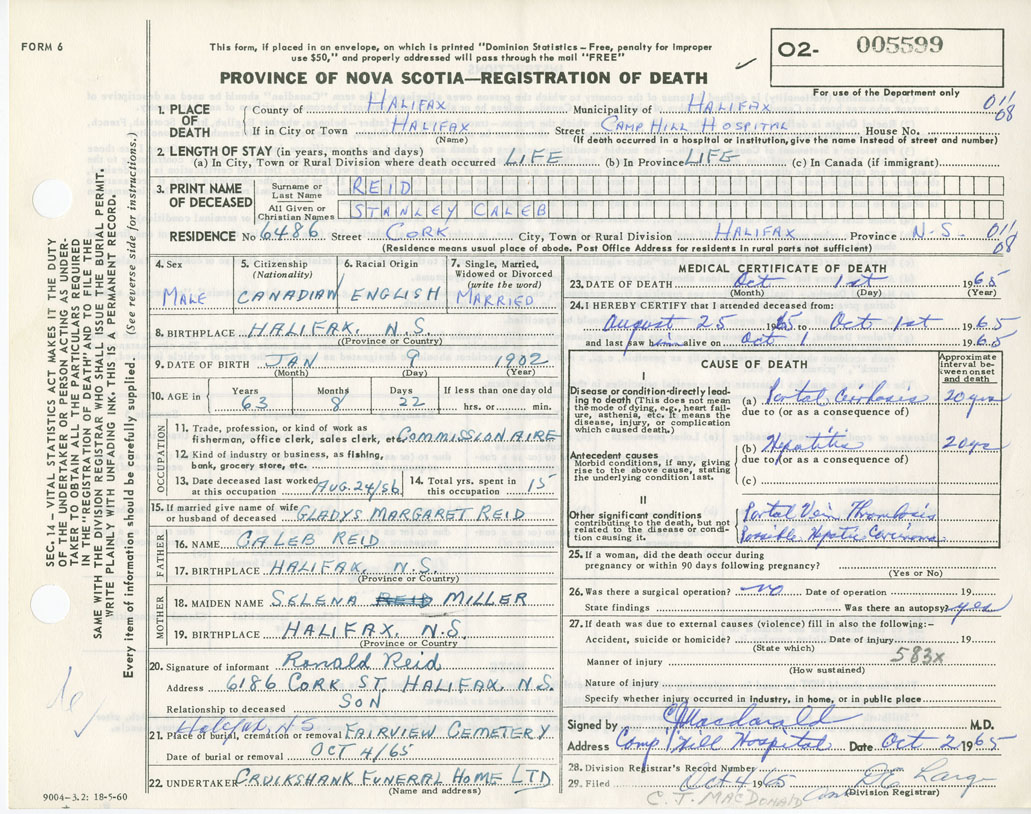 FORM 6
This form, if placed in an envelope, on which is printed "Dominion Statistics – Free, penalty for improper
use $50," and properly addressed will pass through the mail "FREE"
PROVINCE OF NOVA SCOTIA—REGISTRATION OF DEATH
O2- 005599
For use of the Department only
1. PLACE OF DEATH
County of HALIFAX Municipality of HALIFAX 011/08
If in City or Town HALIFAX Street CAMP HILL HOSPITAL House No.
(Name) (If death occurred in a hospital or institution, give the name instead of street and number)
2. LENGTH OF STAY (in years, months and days)
(a) In City, Town or Rural Division where death occurred LIFE (b) In Province LIFE (c) In Canada (if immigrant)
3. PRINT NAME OF DECEASED
Surname or Last Name REID
All Given or Christian Names STANLEY CALEB
RESIDENCE No 6486 Street CORK City, Town or Rural Division HALIFAX Province N.S. 011/08
(Residence means usual place of abode. Post Office Address for residents in rural parts not sufficient)
4. Sex
MALE
5. Citizenship
(Nationality)
CANADIAN
6. Racial Origin
ENGLISH
7. Single, Married,
Widowed or Divorced
(write the word)
MARRIED
8. BIRTHPLACE HALIFAX, N.S.
(Province or Country)
9. DATE OF BIRTH JAN 9 1902
(Month) (Day) (Year)
10. AGE in
Years Months Days If less than one day old
63 8 22 hrs. or min.
OCCUPATION
11. Trade, profession, or kind of work as
fisherman, office clerk, sales clerk, etc. COMMISSIONAIRE
12. Kind of industry or business, as fishing,
bank, grocery store, etc.
13. Date deceased last worked
at this occupation AUG. 24/56
14. Total yrs. spent in
this occupation 15
15. If married give name of wife
or husband of deceased GLADYS MARGARET REID
FATHER
16. NAME CALEB REID
17. BIRTHPLACE HALIFAX, N.S.
(Province or Country)
MOTHER
18. MAIDEN NAME SELENA REID MILLER
19. BIRTHPLACE HALIFAX, N.S.
(Province or Country)
20. Signature of informant Ronald Reid
Address 6186 CORK ST. HALIFAX, N.S.
Relationship to deceased SON
Halifax, NS
21. Place of burial, cremation or removal FAIRVIEW CEMETERY
Date of burial or removal OCT 4/65
22. UNDERTAKER CRUIKSHANK FUNERAL HOME LTD
(Name and address)
MEDICAL CERTIFICATE OF DEATH
23. DATE OF DEATH Oct 1st 1965
(Month) (Day) (Year)
24. I HEREBY CERTIFY that I attended deceased from:
August 25 1965 to Oct 1st 1965
and last saw him alive on Oct 1 1965
CAUSE OF DEATH
Approximate
interval be-
tween onset
and death
I
Disease or condition directly lead-
ing to death (This does not mean
the mode of dying, e.g., heart fail-
ure, asthenia, etc. It means the
disease, injury, or complication
which caused death.)
(a) Portal Cirrhosis 20 yrs
due to (or as a consequence of)
(b) Hepatitis 20 yrs
due to (or as a consequence of)
Antecedent causes
Morbid conditions, if any, giving
rise to the above cause, stating
the underlying condition last.
(c)
II
Other significant conditions
contributing to the death, but not
related to the disease or condi-
tion causing it.
Portal Vein Thrombosis
Possible Hepatic Carcinoma
25. If a woman, did the death occur during
pregnancy or within 90 days following pregnancy?
(Yes or No)
26. Was there a surgical operation? no Date of operation 19
State findings Was there an autopsy? yes
27. If death was due to external causes (violence) fill in also the following:–
Accident, suicide or homicide? Date of injury 19
(State which)
583x
Manner of injury
(How sustained)
Nature of injury
Specify whether injury occurred in industry, in home, or in public place
Signed by CJMacdonald M.D.
Address Camp Hill Hospital Date Oct 2 1965
28. Division Registrar's Record Number
29. Filed Oct 4 1965
(Division Registrar)
C. J. MACDONALD
SEC. 14 – VITAL STATISTICS ACT MAKES IT THE DUTY
OF THE UNDERTAKER OR PERSON ACTING AS UNDER-
TAKER TO OBTAIN ALL THE PARTICULARS REQUIRED
IN THE "REGISTRATION OF DEATH" AND TO FILE THE
SAME WITH THE DIVISION REGISTRAR WHO SHALL ISSUE THE BURIAL PERMIT.
WRITE PLAINLY WITH UNFADING INK. THIS IS A PERMANENT RECORD.
Every item of information should be carefully supplied. (See reverse side for instructions.)
9004–3.2: 18-5-60